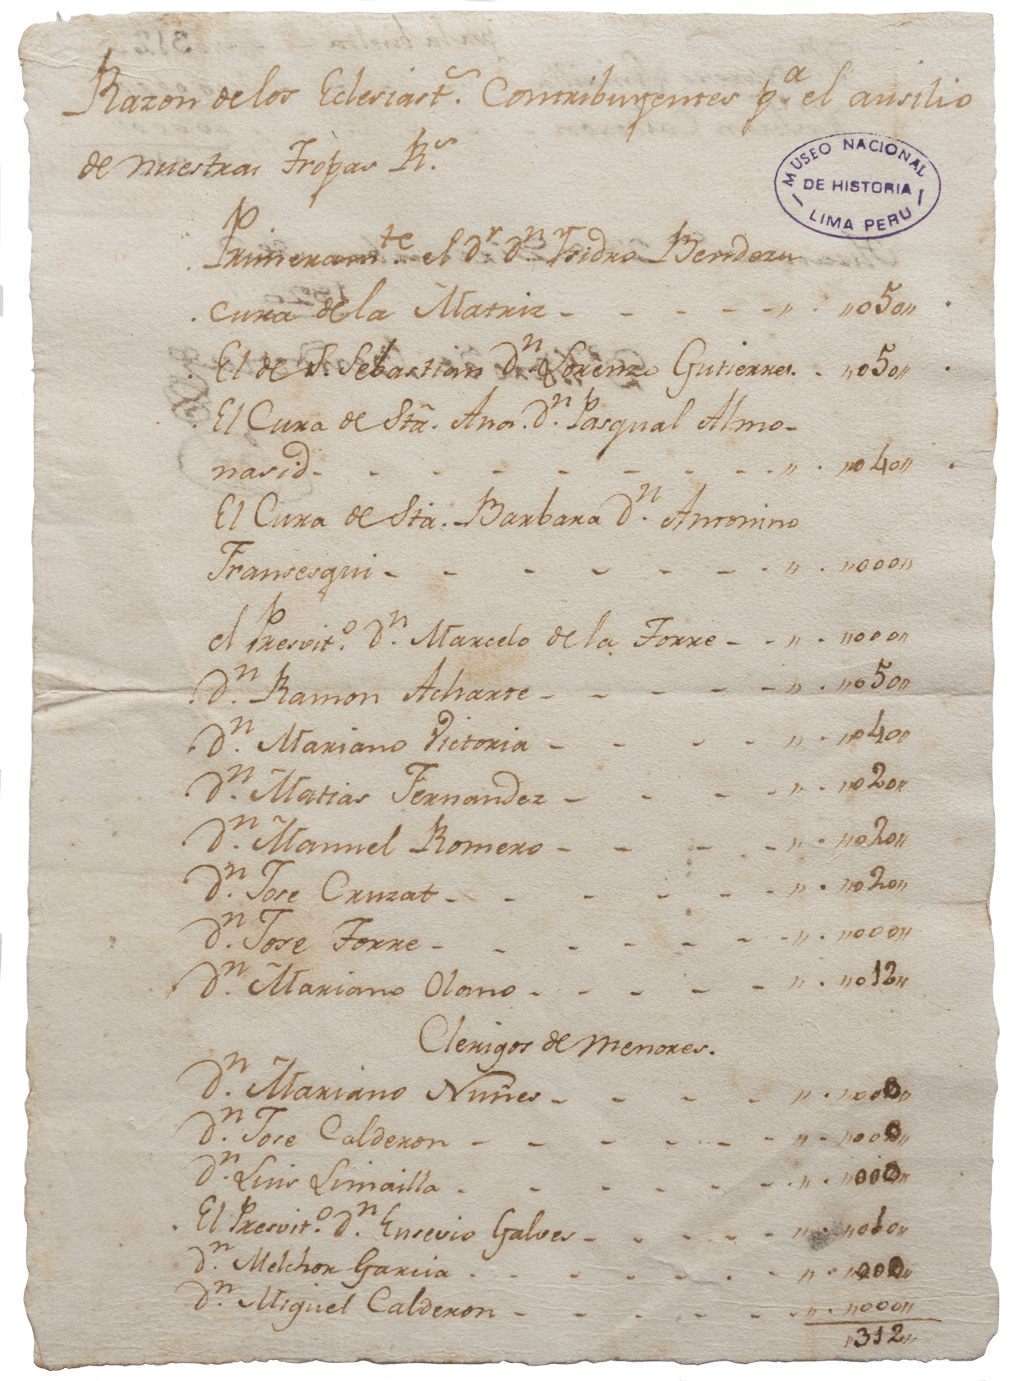 Razon de los Eclesiast.s Contribuyentes p.a el ausilio
de nuestras Tropas R.s
MUSEO NACIONAL
DE HISTORIA
LIMA PERU
Primeram.te el D.r D.n Ysidro Bendezu
cura de la Matriz - - - - - " . "050"
El de S. Sebastian D.n Lorenzo Gutierres. . "050"
El Cura de Sta. Ana. D.n Pasqual Almo-
nasid - - - - - - - - " . "040"
El Cura de Sta. Barbara D.n Antonino
Fransesqui - - - - - - - " . "000"
el Presvit.o D.n Marcelo de la Torre - - " . "000"
D.n Ramon Acharte - - - - - " . "050"
D.n Mariano Victoria - - - - " . "040"
D.n Matias Fernandez - - - - " . "020"
D.n Manuel Romero - - - - " . "020"
D.n Jose Cruzat - - - - - " . "020"
D.n Jose Torre - - - - - - " . "000"
D.n Mariano Olano - - - - - " . "012"
Clerigos de menores.
D.n Mariano Nuñes - - - - " . "000"
D.n Jose Calderon - - - - - " . "000"
D.n Luis Limailla - - - - - " . "000"
El Presvit.o D.n Eusevio Galves - - - - "
D.n Melchor Garcia - - - - - - " . "000"
D.n Miguel Calderon - - - - - " . "000"
"312"